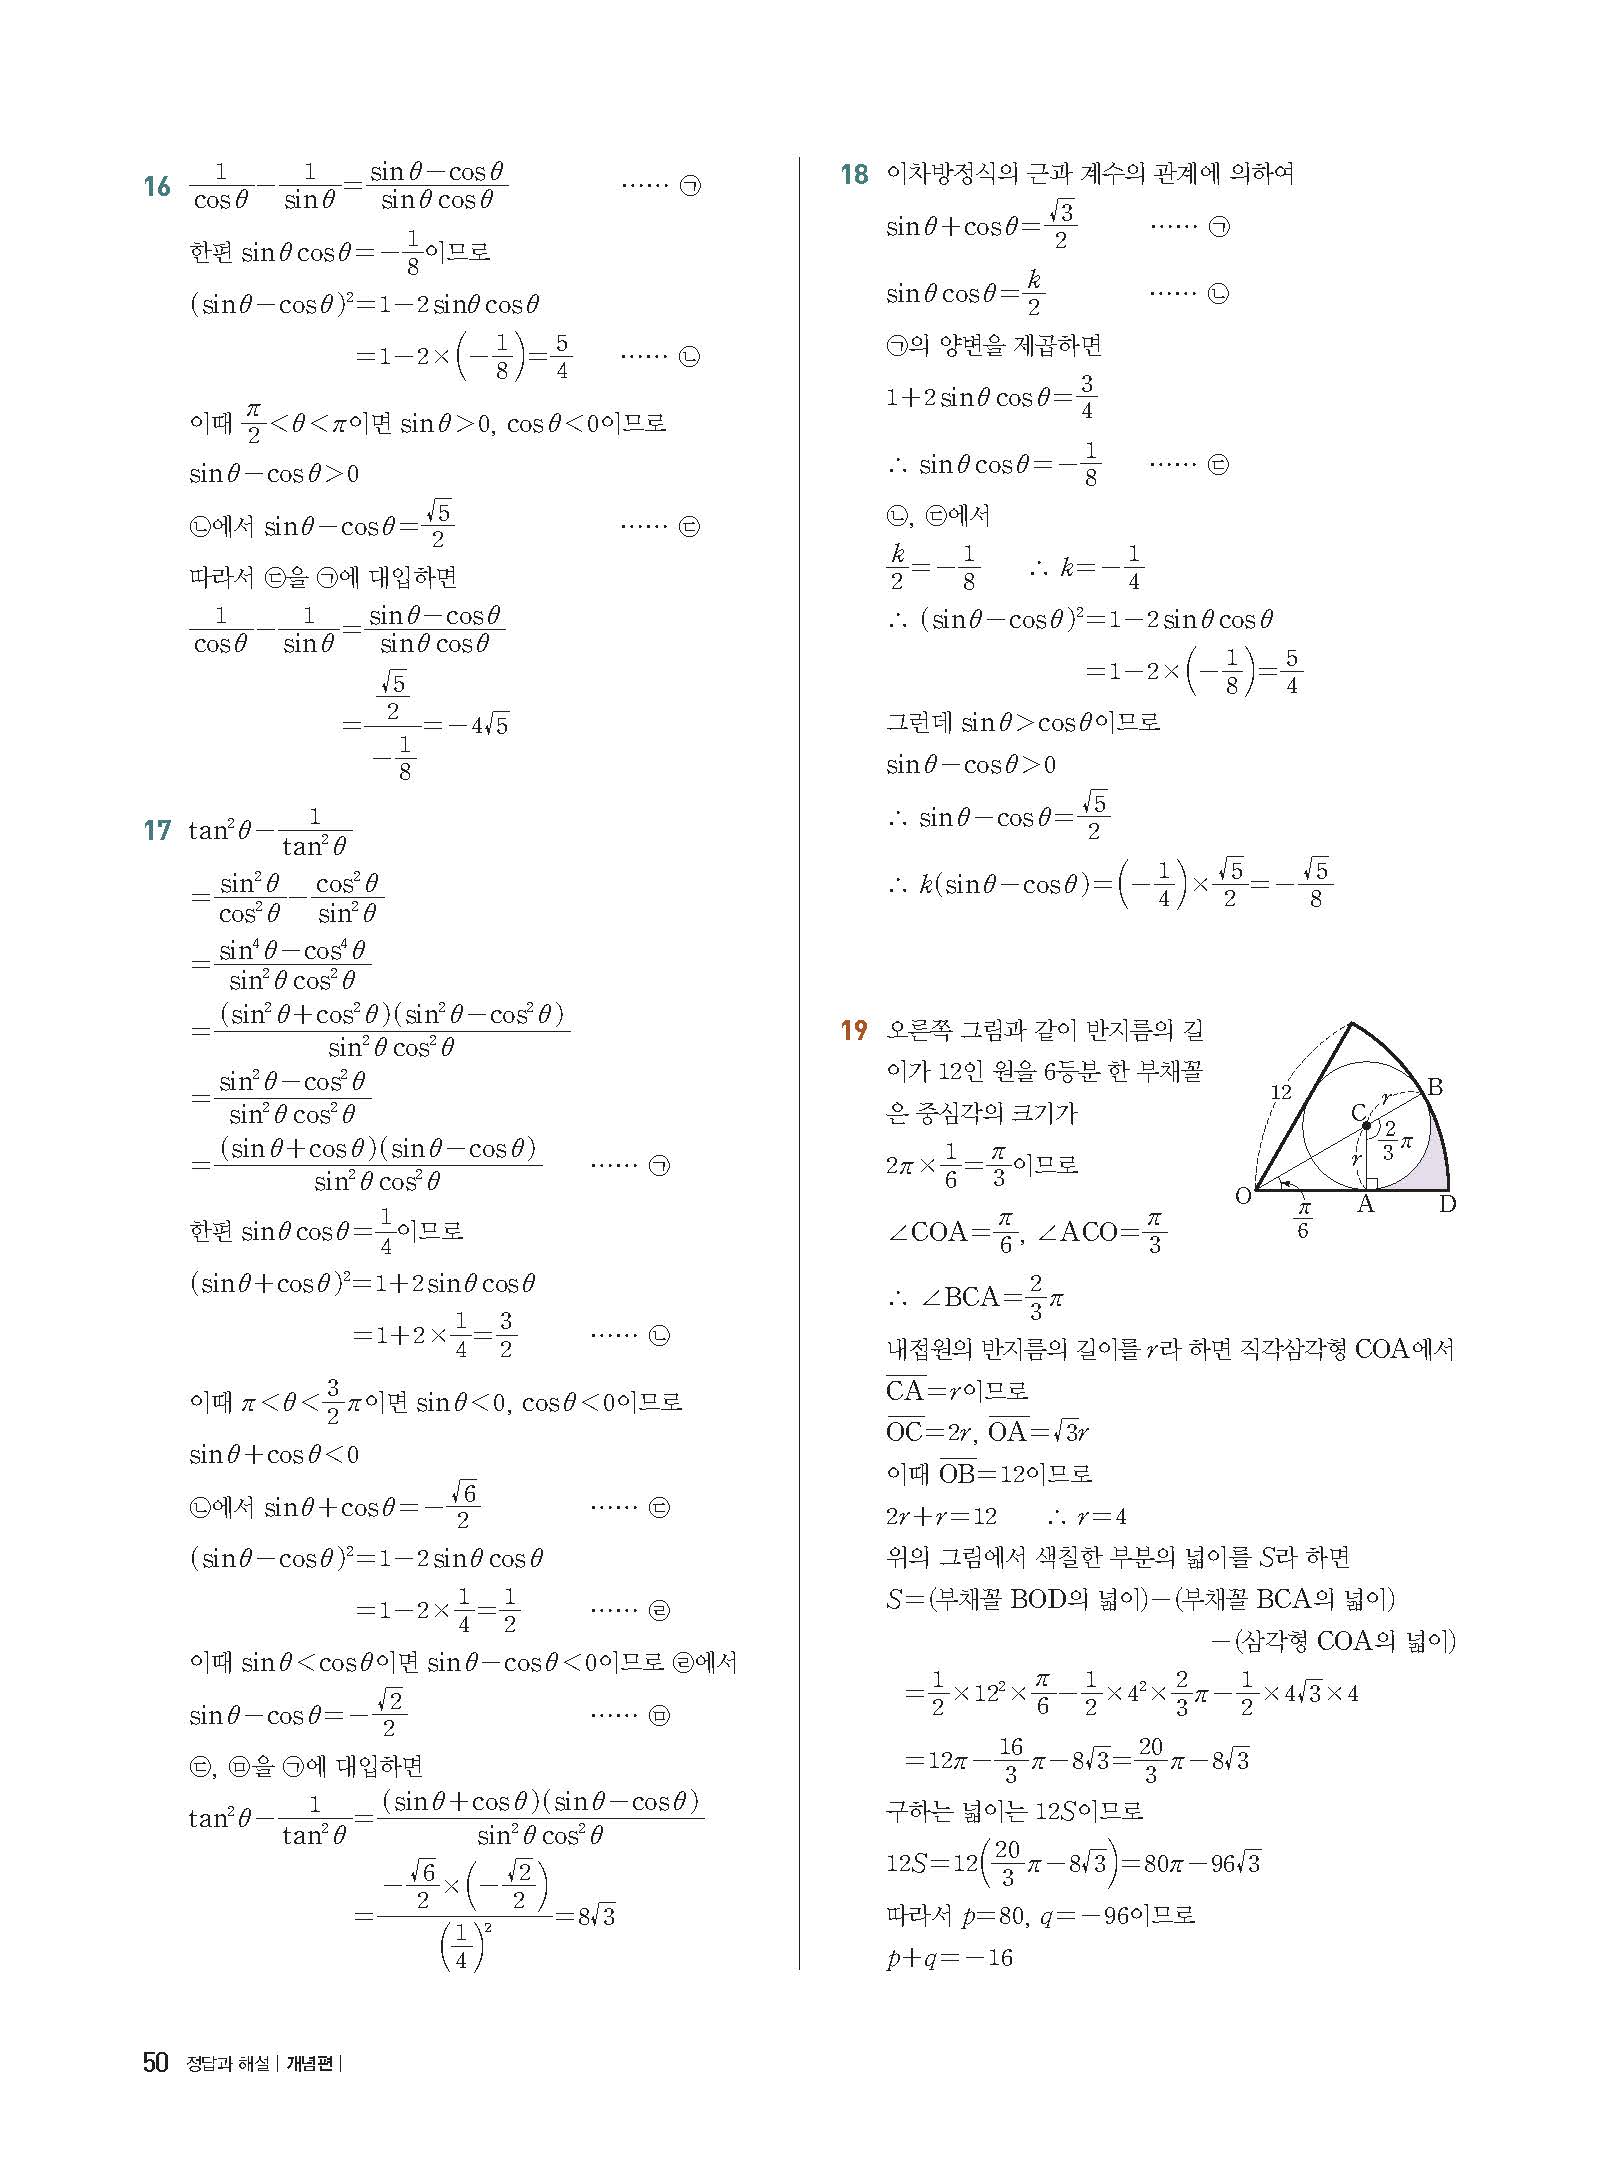 16 1/cosθ－1/sinθ＝(sinθ－cosθ)/(sinθcosθ) …… ㉠
한편 sinθcosθ＝－1/8이므로
(sinθ－cosθ)²＝1－2sinθcosθ
＝1－2×(－1/8)＝5/4 …… ㉡
이때 π/2＜θ＜π이면 sinθ＞0, cosθ＜0이므로
sinθ－cosθ＞0
㉡에서 sinθ－cosθ＝√5/2 …… ㉢
따라서 ㉢을 ㉠에 대입하면
1/cosθ－1/sinθ＝(sinθ－cosθ)/(sinθcosθ)
＝(√5/2)/(－1/8)＝－4√5
17 tan²θ－1/tan²θ
＝sin²θ/cos²θ－cos²θ/sin²θ
＝(sin⁴θ－cos⁴θ)/(sin²θcos²θ)
＝(sin²θ＋cos²θ)(sin²θ－cos²θ)/(sin²θcos²θ)
＝(sin²θ－cos²θ)/(sin²θcos²θ)
＝(sinθ＋cosθ)(sinθ－cosθ)/(sin²θcos²θ) …… ㉠
한편 sinθcosθ＝1/4이므로
(sinθ＋cosθ)²＝1＋2sinθcosθ
＝1＋2×1/4＝3/2 …… ㉡
이때 π＜θ＜3/2π이면 sinθ＜0, cosθ＜0이므로
sinθ＋cosθ＜0
㉡에서 sinθ＋cosθ＝－√6/2 …… ㉢
(sinθ－cosθ)²＝1－2sinθcosθ
＝1－2×1/4＝1/2 …… ㉣
이때 sinθ＜cosθ이면 sinθ－cosθ＜0이므로 ㉣에서
sinθ－cosθ＝－√2/2 …… ㉤
㉢, ㉤을 ㉠에 대입하면
tan²θ－1/tan²θ＝(sinθ＋cosθ)(sinθ－cosθ)/(sin²θcos²θ)
＝(－√6/2×(－√2/2))/(1/4)²＝8√3
18 이차방정식의 근과 계수의 관계에 의하여
sinθ＋cosθ＝√3/2 …… ㉠
sinθcosθ＝k/2 …… ㉡
㉠의 양변을 제곱하면
1＋2sinθcosθ＝3/4
∴ sinθcosθ＝－1/8 …… ㉢
㉡, ㉢에서
k/2＝－1/8 ∴ k＝－1/4
∴ (sinθ－cosθ)²＝1－2sinθcosθ
＝1－2×(－1/8)＝5/4
그런데 sinθ＞cosθ이므로
sinθ－cosθ＞0
∴ sinθ－cosθ＝√5/2
∴ k(sinθ－cosθ)＝(－1/4)×√5/2＝－√5/8
19 오른쪽 그림과 같이 반지름의 길
이가 12인 원을 6등분 한 부채꼴
은 중심각의 크기가
2π×1/6＝π/3이므로
∠COA＝π/6, ∠ACO＝π/3
∴ ∠BCA＝2/3π
12
C
r
B
2/3π
r
O
π/6
A
D
내접원의 반지름의 길이를 r라 하면 직각삼각형 COA에서
C̅A̅＝r이므로
O̅C̅＝2r, O̅A̅＝√3r
이때 O̅B̅＝12이므로
2r＋r＝12 ∴ r＝4
위의 그림에서 색칠한 부분의 넓이를 S라 하면
S＝(부채꼴 BOD의 넓이)－(부채꼴 BCA의 넓이)
－(삼각형 COA의 넓이)
＝1/2×12²×π/6－1/2×4²×2/3π－1/2×4√3×4
＝12π－16/3π－8√3＝20/3π－8√3
구하는 넓이는 12S이므로
12S＝12(20/3π－8√3)＝80π－96√3
따라서 p＝80, q＝－96이므로
p＋q＝－16
50 정답과 해설 | 개념편 |